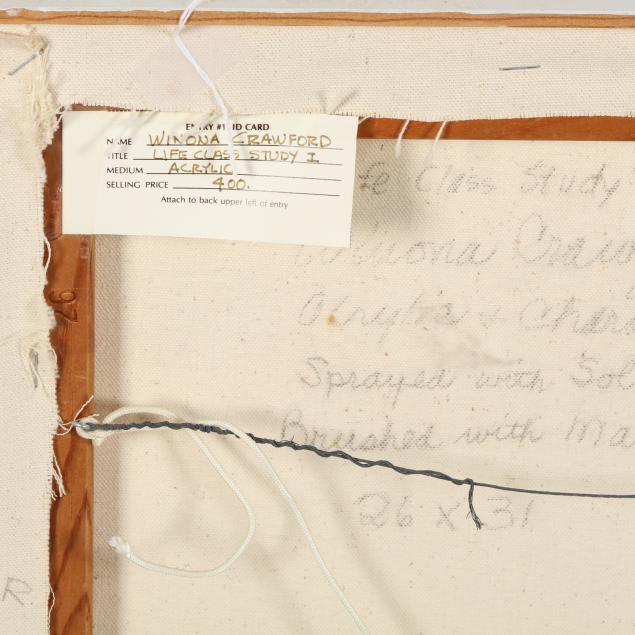 ENTRY #1 ID CARD
NAME WINONA CRAWFORD
TITLE LIFE CLASS STUDY I
MEDIUM ACRYLIC
SELLING PRICE 400.
Attach to back upper left of entry
Class Study
Winona Craw
Acrylic + Char
Sprayed with Sol
Brushed with Ma
26 x 31
26
R